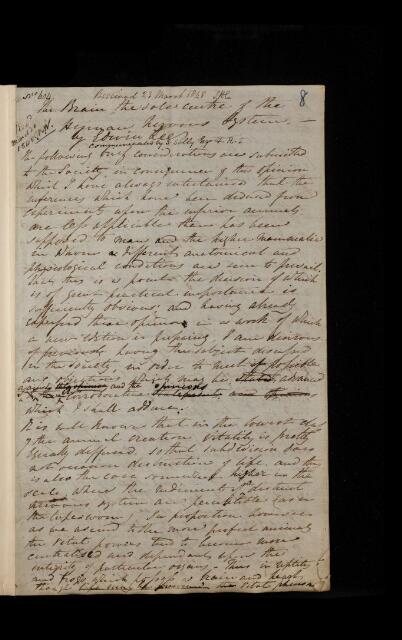 Received 23 March 1848
8
The Brain the sole centre of the
Human Nervous System. —
by Edwin Lee
communicated by S. Solly Esqr F.R.S
The following brief considerations are submitted
to the Society in consequence of the opinion
which I have always entertained that the
inferences which have been deduced from
experiments upon the inferior animals
are less applicable than has been
supposed to man and the higher mammalia
in whom a different anatomical and
physiological conditions are seen to prevail.
That this is a point the decision of which
is of great practical importance is
sufficiently obvious, and having already
expressed these opinions in a work of which
a new edition is preparing I am desirous
of previously having the subject discussed
in the Society in order to meet possible
objections which may be advanced
against the opinions and the
which I shall adduce.
It is well known that in the lowest class
of the animal creation vitality is pretty
equally diffused, so that subdivision does
not occasion destruction of life, and this
is also the case somewhat higher in the
scale where the rudiments of a distinct
nervous system are perceptible as in
the tape worm. In proportion however
as we ascend to the more perfect animals
the vital powers tend to become more
centralised and dependant upon the
integrity of particular organs. Thus in reptiles
and frogs which possess a brain and